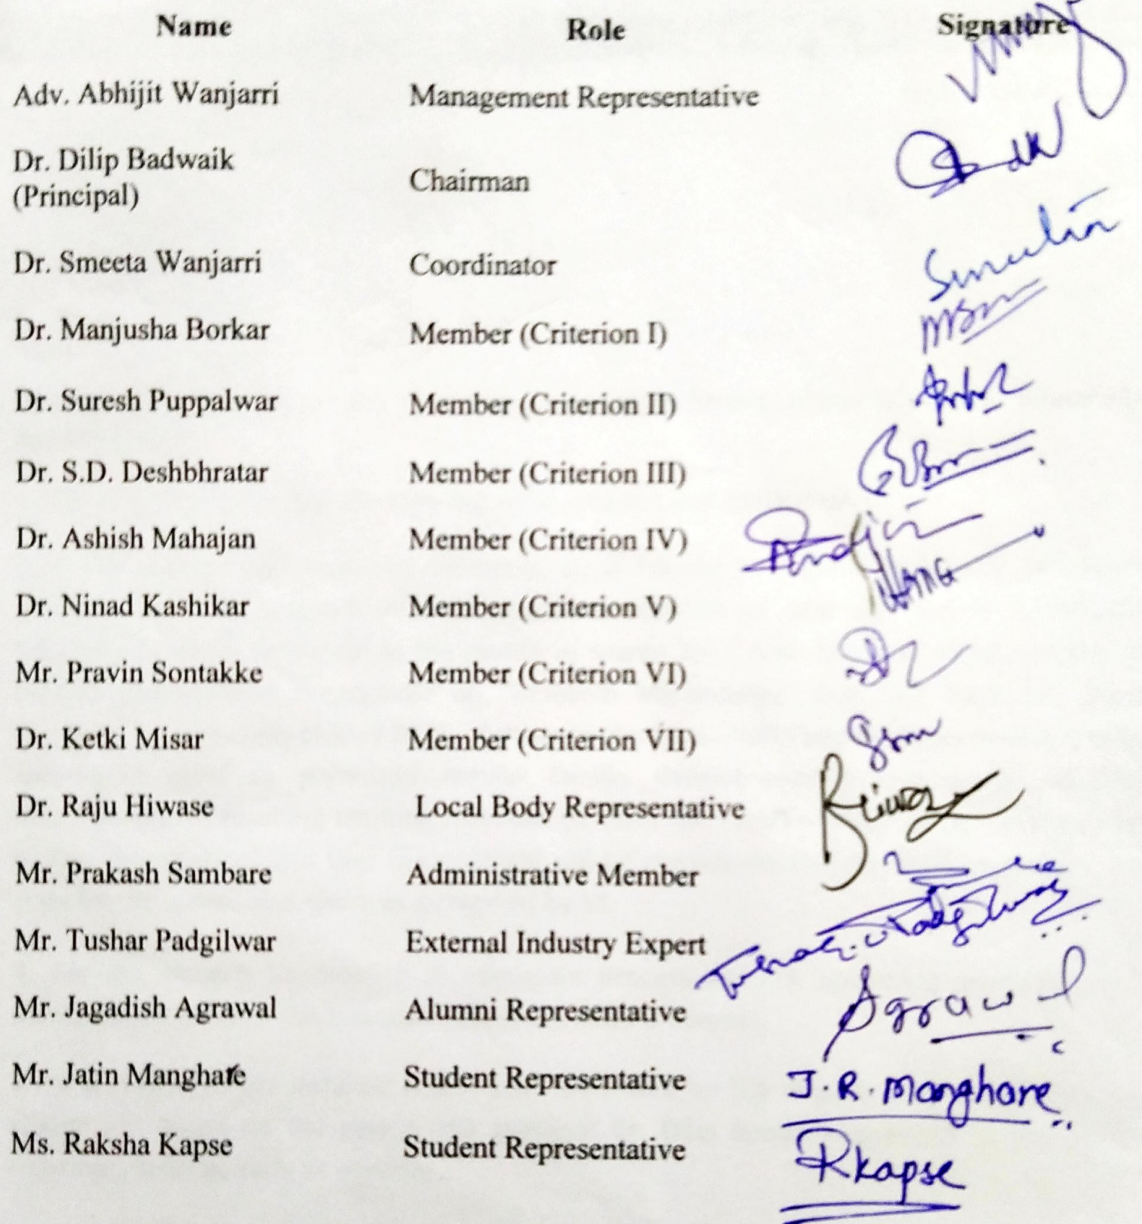 Name Role Signature
Adv. Abhijit Wanjarri Management Representative
Dr. Dilip Badwaik
(Principal) Chairman
Dr. Smeeta Wanjarri Coordinator
Dr. Manjusha Borkar Member (Criterion I)
Dr. Suresh Puppalwar Member (Criterion II)
Dr. S.D. Deshbhratar Member (Criterion III)
Dr. Ashish Mahajan Member (Criterion IV)
Dr. Ninad Kashikar Member (Criterion V)
Mr. Pravin Sontakke Member (Criterion VI)
Dr. Ketki Misar Member (Criterion VII)
Dr. Raju Hiwase Local Body Representative
Mr. Prakash Sambare Administrative Member
Mr. Tushar Padgilwar External Industry Expert
Mr. Jagadish Agrawal Alumni Representative Agrawal
Mr. Jatin Manghare Student Representative J.R. Manghare
Ms. Raksha Kapse Student Representative Rkapse